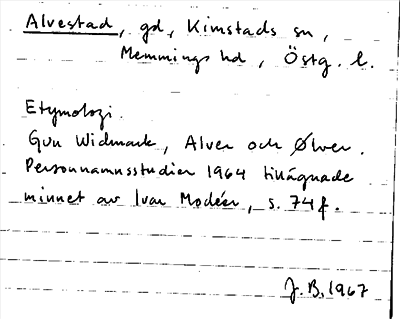 Alvestad, gd, Kimstads sn,
Memmings hd, Östg. l.
Etymologi.
Gun Widmark, Alver och Ølver.
Personnamnsstudier 1964 tillägnade
minnet av Ivar Modéer, s. 74 f.
J.B. 1967